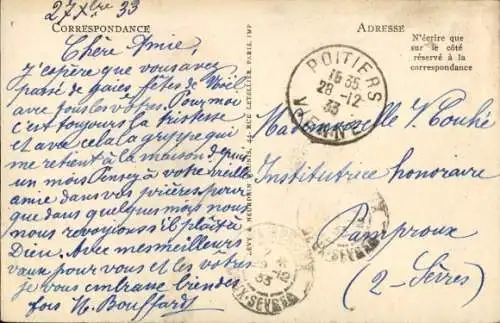 27 Xbre 33
CORRESPONDANCE
Chère Amie,
J'espère que vous avez
passé de gaies fêtes de Noël
avec tous les vôtres. Pour moi
c'est toujours la tristesse
et avec cela la grippe qui
me retient à la maison depuis
un mois. Pensez à votre vieille
amie dans vos prières pour
que dans quelques mois nous
nous revoyions s'il plaît à
Dieu. Avec mes meilleurs
vœux pour vous et les vôtres
je vous embrasse tendre
fois H. Bouffard
LÉVY & NEURDEIN RÉUNIS, 44, RUE LETELLIER, PARIS, IMP
ADRESSE
N'écrire que
sur le côté
réservé à la
correspondance
POITIERS
1635
28-12
33
VIENNE
Mademoiselle V. Couhé
Institutrice honoraire
Pamproux
(2-Sèvres)
33
X-SEVRES